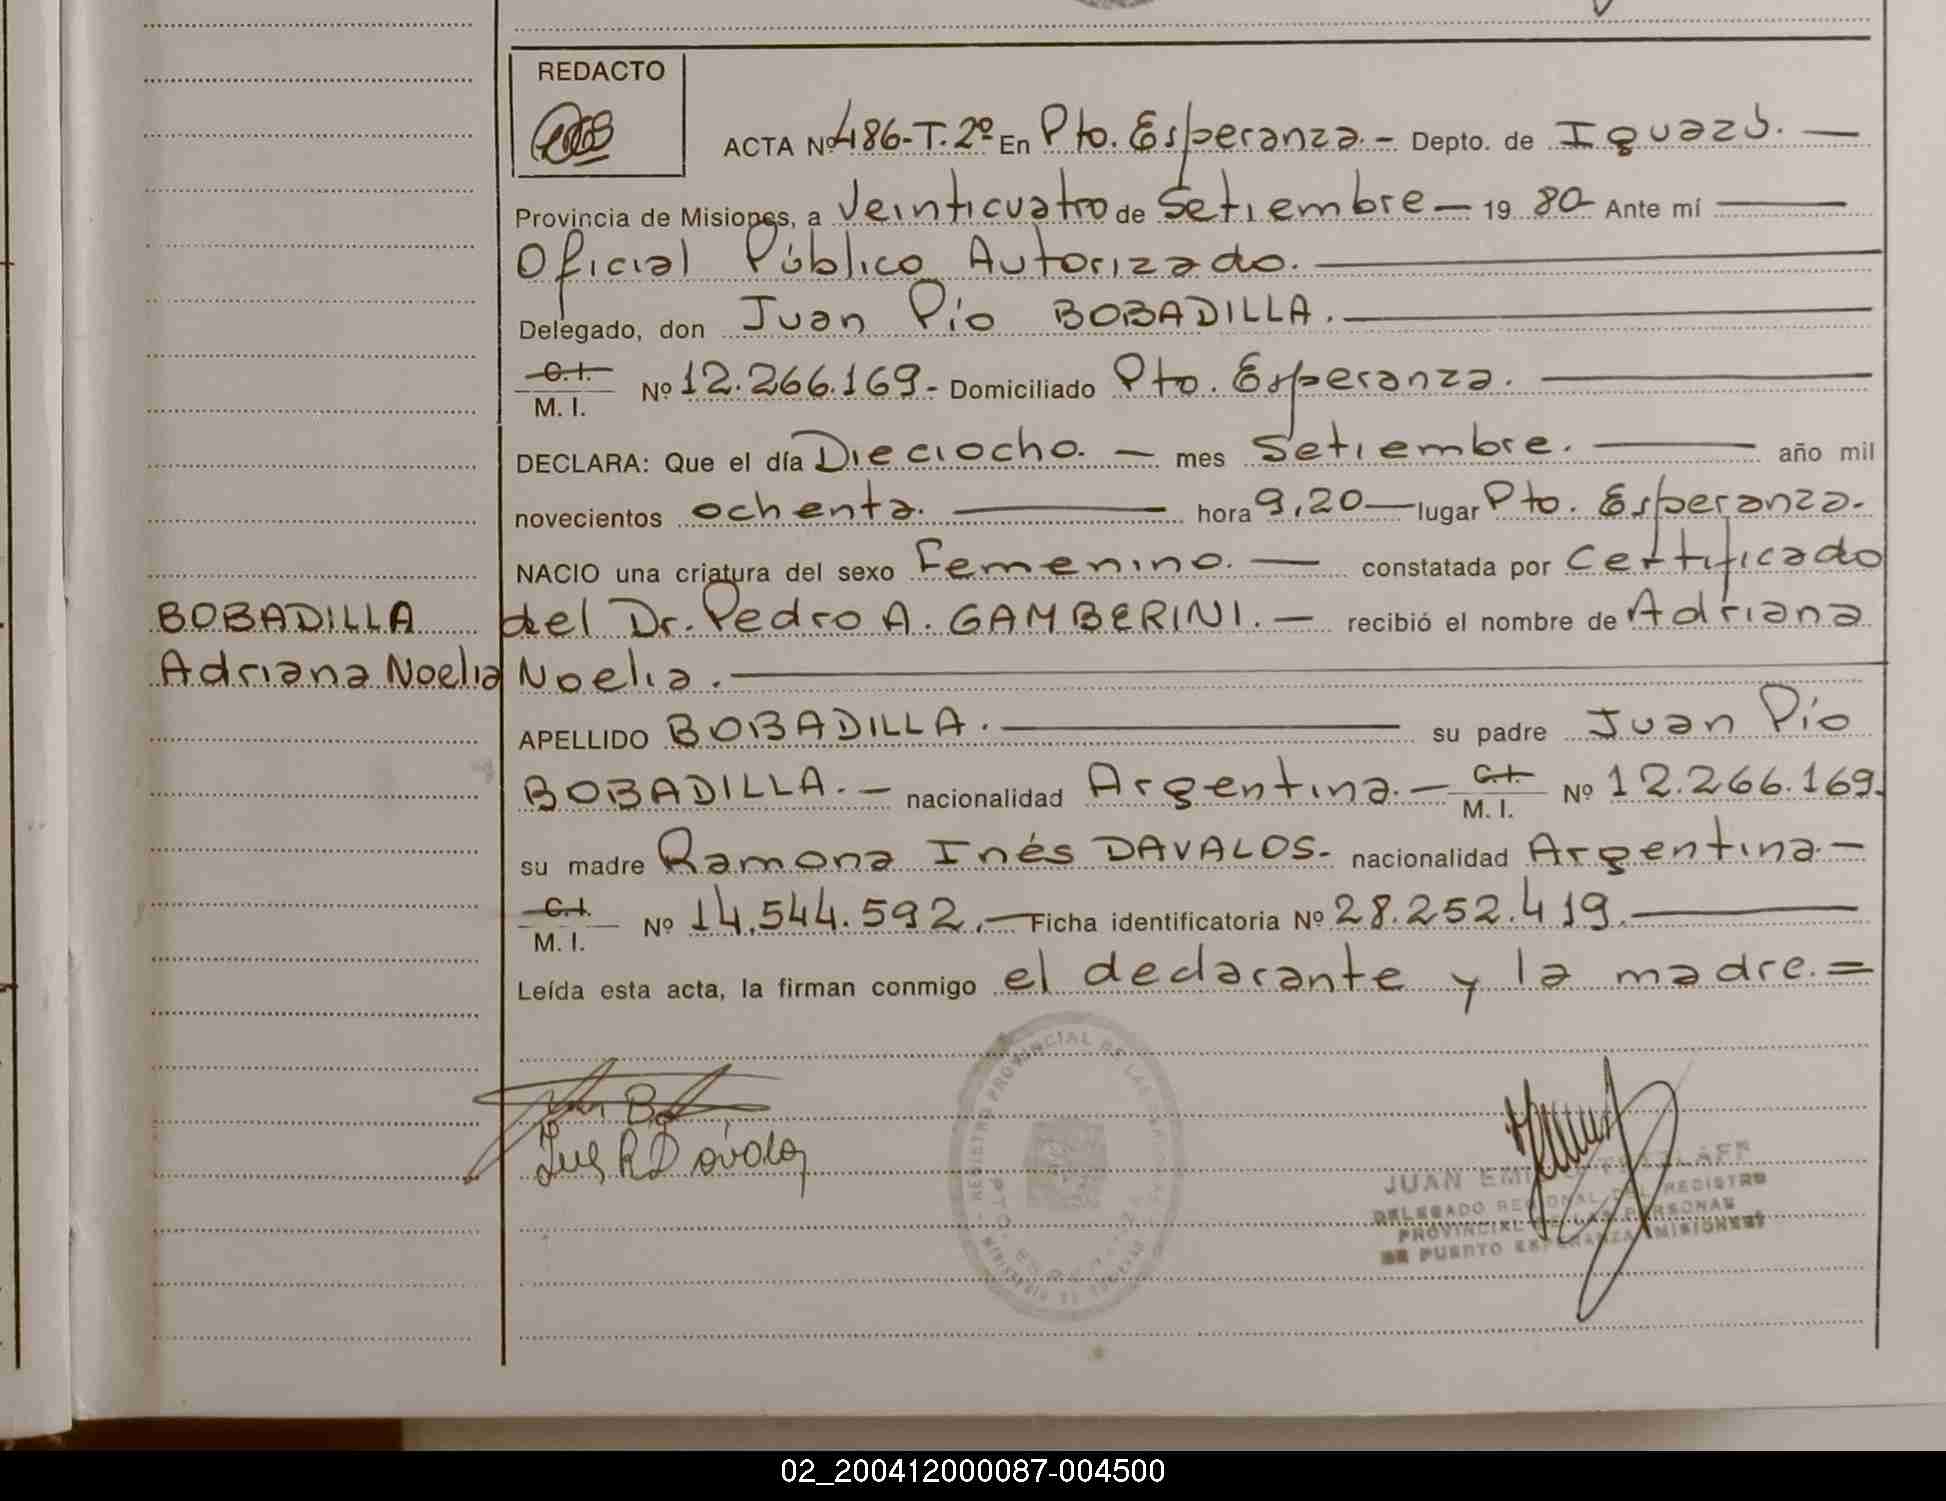 REDACTO
ACTA Nº 486-T.2º En Pto. Esperanza.- Depto. de Iguazú. —
Provincia de Misiones, a Veinticuatro de Setiembre — 19 80- Ante mí —
Oficial Público Autorizado. —
Delegado, don Juan Pío BOBADILLA. —
C.I.
M. I. Nº 12.266.169.- Domiciliado Pto. Esperanza. —
DECLARA: Que el día Dieciocho. — mes Setiembre. — año mil
novecientos ochenta. — hora 9,20 — lugar Pto. Esperanza.
NACIO una criatura del sexo Femenino. — constatada por Certificado
del Dr. Pedro A. GAMBERINI. — recibió el nombre de Adriana
Noelia. —
BOBADILLA
Adriana Noelia
APELLIDO BOBADILLA. — su padre Juan Pío
BOBADILLA. — nacionalidad Argentina. — C.I.
M. I. Nº 12.266.169.
su madre Ramona Inés DAVALOS.- nacionalidad Argentina.-
C.I.
M. I. Nº 14.544.592.— Ficha identificatoria Nº 28.252.419. —
Leída esta acta, la firman conmigo el declarante y la madre.=
REGISTRO PROVINCIAL DE LAS PERSONAS
JUAN EMI
DELEGADO REGIONAL DEL REGISTRO
PROVINCIAL DE LAS PERSONAS
DE PUERTO ESPERANZA (MISIONES)
02_200412000087-004500